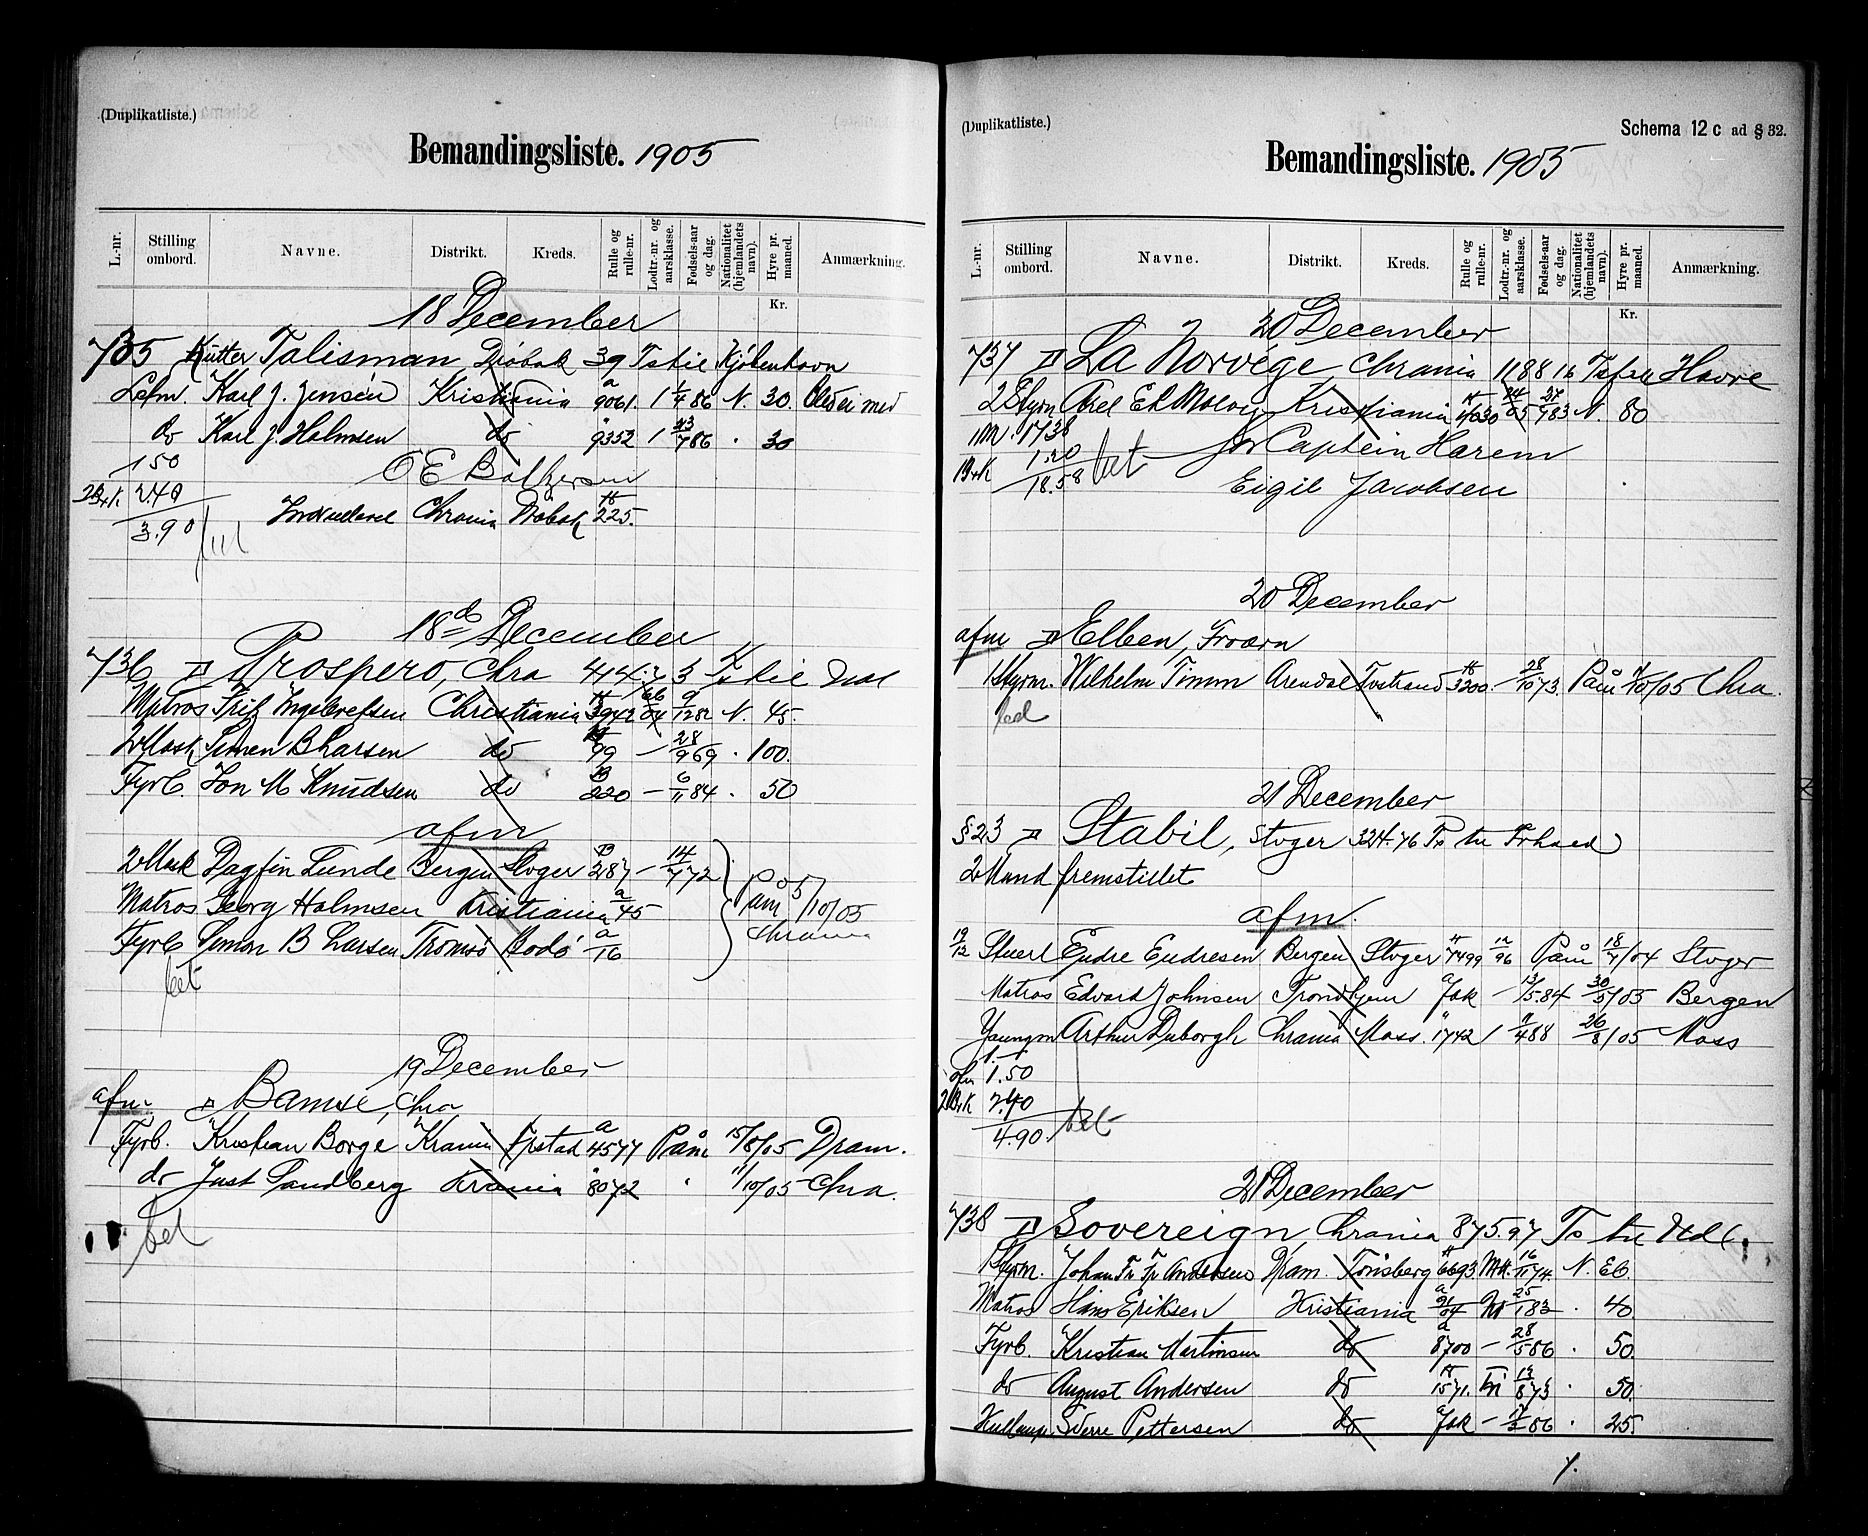 (Duplikatliste.)
Bemandingsliste. 1905
L.-nr.
Stilling ombord.
Navne.
Distrikt.
Kreds.
Rulle og rulle-nr.
Lodtr.-nr. og aarsklasse.
Fødsels-aar og dag.
Nationalitet (hjemlandets navn).
Hyre pr. maaned.
Anmærkning.
Kr.
18 December
735 Kutter Talisman Drøbak 39 Ts til Kjøbenhavn
Karl J. Jensen Kristiania a 9061 1 1/4 86 N. 30.
do Karl J. Halmsen do " 9352 1 23/7 86 . 30
1 50
2.40
3.90
Chrania Drøbak 225.
18de December
736 Prospero, Chra 447.73 Ts til
Matros Christiania 3942 66/04 9/12 82 N. 45.
2 Mask Simen B Larsen do 99 — 28/9 69 . 100.
Fyrb. Jon M Knudsen do 220 — 6/11 84 . 50
afm
2 Mask Dagfin Lunde Bergen Stvger 287 — 14/7 72
Matros Georg Halmsen Kristiania a/45
Fyrb Simon B Larsen Tromsø Bodø a/16
Påm 5/10/05 Chrania
bet
19 December
afm Bamse, Chra
Fyrb. Kristian Borge Krania a 4577 Påm 15/8/05 Dram.
do Just Sandberg Krania " 8072 " 11/10/05 Chra.
bet
(Duplikatliste.)
Schema 12 c ad § 32.
Bemandingsliste. 1905
L.-nr.
Stilling ombord.
Navne.
Distrikt.
Kreds.
Rulle og rulle-nr.
Lodtr.-nr. og aarsklasse.
Fødsels-aar og dag.
Nationalitet (hjemlandets navn).
Hyre pr. maaned.
Anmærkning.
Kr.
20 December
737 La Norvége Chrania 1188 16 Ts fra Havre
2 Styrm Axel Kristiania 4030 24/05 27/9 83 N. 80
1 M. 17/38
1.20
18.58 bet
for Captein Harem
Eigil Jacobsen
20 December
afm Elben,
1 Styrm. Wilhelm Timm Arendal 3200. — 28/10 73 Påm 4/10/05 Chra.
bet
21 December
§23 Stabil, Stvger 324.76 Ts
2 Mand fremstillet
afm.
19/12 Stuert Endre Endresen Bergen Stvger 7499 12/96 Påm 18/7/04 Stvger
Matros Edvard Johnsen Trondhjem a Jak — 13/5 84 30/5/05 Bergen
Youngm Arthur Duborgh Chrania Moss. " 1742 1 11/4 88 26/8/05 Moss
1.—
afm 1.50
2.40
4.90. bet
21 December
738 Sovereign Chrania 875.97 Ts
Styrm. Johan Fr Andersen Dram. Tønsberg 6693 16/11 74. N.
Matros Hans Eriksen Kristiania a 91/04 25/1 83 . 40
Fyrb. Kristian Martinsen do a 8700 — 28/5 86 . 50.
do August Andersen do 1571. 13/8 73 . 50.
Sverre Pettersen do a Jak — 86 . 25.